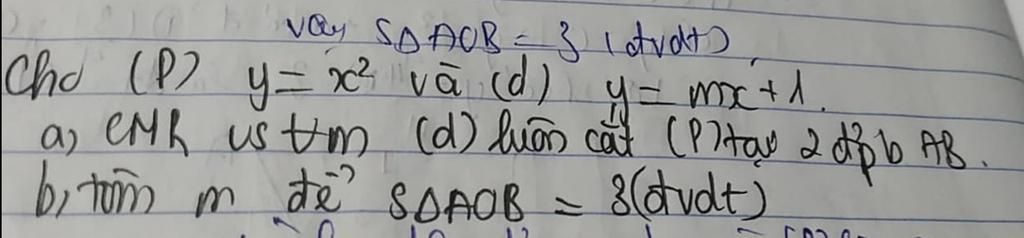 vậy SΔAOB = 3 (dvdt)
Cho (P) y = x² và (d) y = mx + 1.
a, CMR vs ∀m (d) luôn cắt (P) tại 2 đ'pb AB.
b, tìm m để SΔAOB = 3(dvdt)